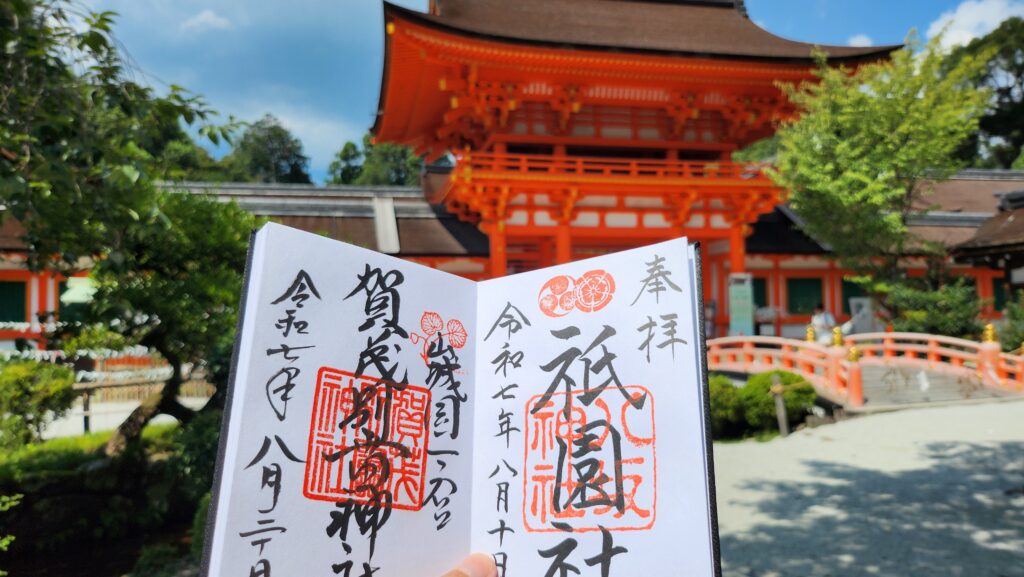 奉拝
八坂神社
祇園社
令和七年八月十日
山城国一之宮
賀茂別雷神社
賀茂神社
令和七年八月二十日